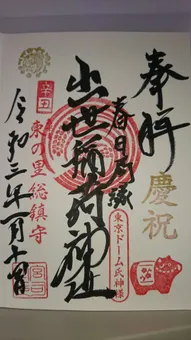 奉拝
慶祝
春日局縁
東京ドーム氏神様
出世稲荷神社
辛丑
東の里総鎮守
令和三年一月十四日